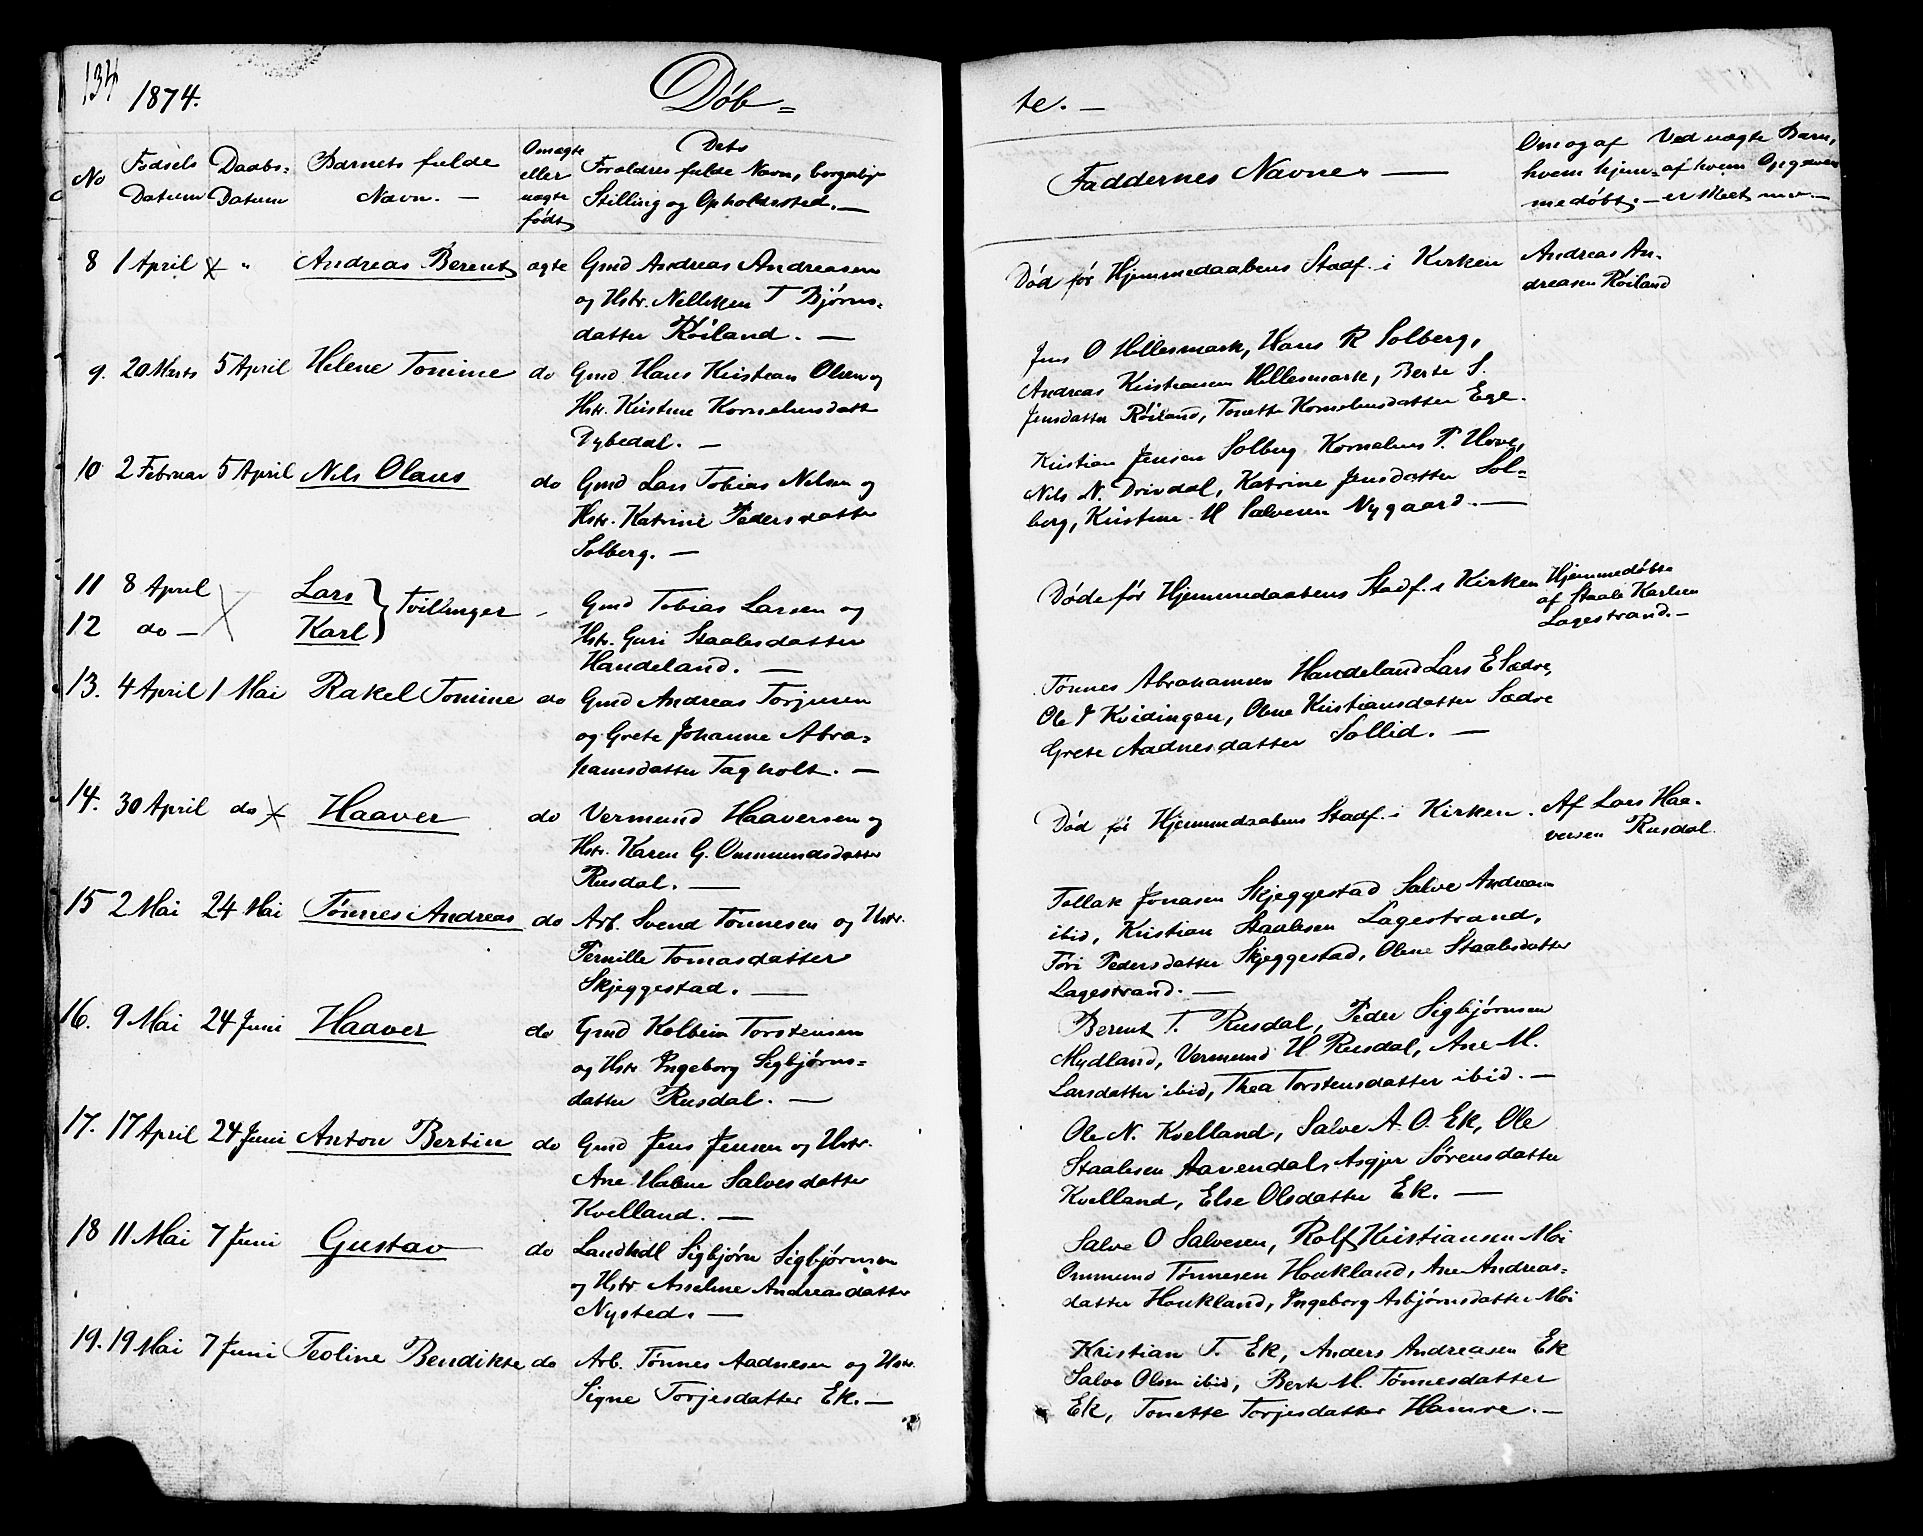 134
1874.
Döb=
te. —
No
Fødsels
Datum
Daabs-
Datum
Barnets fulde
Navn. —
Omægte
eller
uægte
født
Dets
Forældres fulde Navn, borgerlige
Stilling og Opholdssted. —
Faddernes Navne. —
Om og af
hvem hjem-
medøbt. —
Ved uægte Barn,
af hvem Opgaven
er Meet m. v. —
8 1 April × „ Andreas Berent ægte Gmd Andreas Andreasen
og Hstr. Nellikken T Bjørns=
datter Røiland. —
Død før Hjemmedaabens Stadf. i Kirken
Andreas An-
dreasen Røiland
9. 20 Marts 5 April Helene Tomine do Gmd Hans Kristian Olsen og
Hstr. Kristine Kornelius datt
Dybedal. —
Jens O Hellesmark, Hans R Solberg,
Andreas Kristiansen Hellesmark, Berte S.
Jensdatter Røiland, Tonette Korneliusdatter Ege.
10 2 Februar 5 April Nils Olaus do Gmd Lars Tobias Nilsen og
Hstr. Katrine Pedersdatter
Solberg. —
Kristian Jensen Solberg Kornelius P. Hove,
Nils N. Drivdal, Katrine Jensdatter Sol=
berg, Kristine M Salvesen Nygaard. —
11 8 April Lars
12 do — Karl } Tvillinger - Gmd Tobias Larsen og
Hstr. Guri Staalesdatter
Handeland. —
Døde før Hjemmedaabens Stadf. i Kirken
Hjemmedøbte
af Staale Karlsen
Lagestrand. —
13. 4 April 1 Mai Rakel Tomine do Gmd Andreas Torjusen
og Grete Johanne Abra=
hamsdatter Tagholt. —
Tønnes Abrahamsen Handeland Lars E Sædre,
Ole T Kvidingen, Olene Kristiansdatter Sædre
Grete Aadnesdatter Sollid. —
14. 30 April do × Haaver do Vermund Haaversen og
Hstr. Karen G. Ommundsdatter
Rusdal. —
Død før Hjemmedaabens Stadf. i Kirken.
Af Lars Haa-
versen Rusdal.
15 2 Mai 24 Mai Tønnes Andreas do Arb. Svend Tønnesen og Hstr.
Pernille Tomasdatter
Skjeggestad. —
Tollak Jonasen Skjeggestad Salve Andreasen
ibid, Kristian Staalesen Lagestrand,
Tori Pedersdatter Skjeggestad, Olene Staalesdatter
Lagestrand. —
16. 9 Mai 24 Juni Haaver do Gmd Kolbein Torstensen
og Hstr Ingeborg Sigbjørns=
datter Rusdal. —
Berent T. Rusdal, Peder Sigbjørnsen
Mydland, Vermund H Rusdal, Ane M.
Larsdatter ibid, Thea Torstensdatter ibid. —
17. 17 April 24 Juni Anton Bertin do Gmd Jens Jensen og Hstr.
Ane Malene Salvesdatter
Kvelland. —
Ole N. Kvelland, Salve A. O. Ek, Ole
Staalesen Aavendal, Asgjer Sørensdatter
Kvelland, Else Olsdatter Ek. —
18 11 Mai 7 Juni Gustav do Landhdl Sigbjørn Sigbjørnsen
og Hstr Asseline Andreasdatter
Nysted. —
Salve O Salvesen, Rolf Kristiansen Moi
Ommund Tønnesen Houkland, Ane Andreas=
datter Houkland, Ingeborg Asbjørnsdatter Moi
19. 19 Mai 7 Juni Teoline Bendikte do Arb. Tønnes Aadnesen og Hstr.
Signe Torjesdatter Ek. —
Kristian T. Ek, Anders Andreasen Ek
Salve Olsen ibid, Berte M. Tønnesdatter
Ek, Tonette Torjesdatter Hamre. —